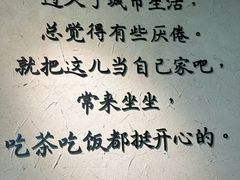 过久了城市生活，
总觉得有些厌倦。
就把这儿当自己家吧，
常来坐坐，
吃茶吃饭都挺开心的。